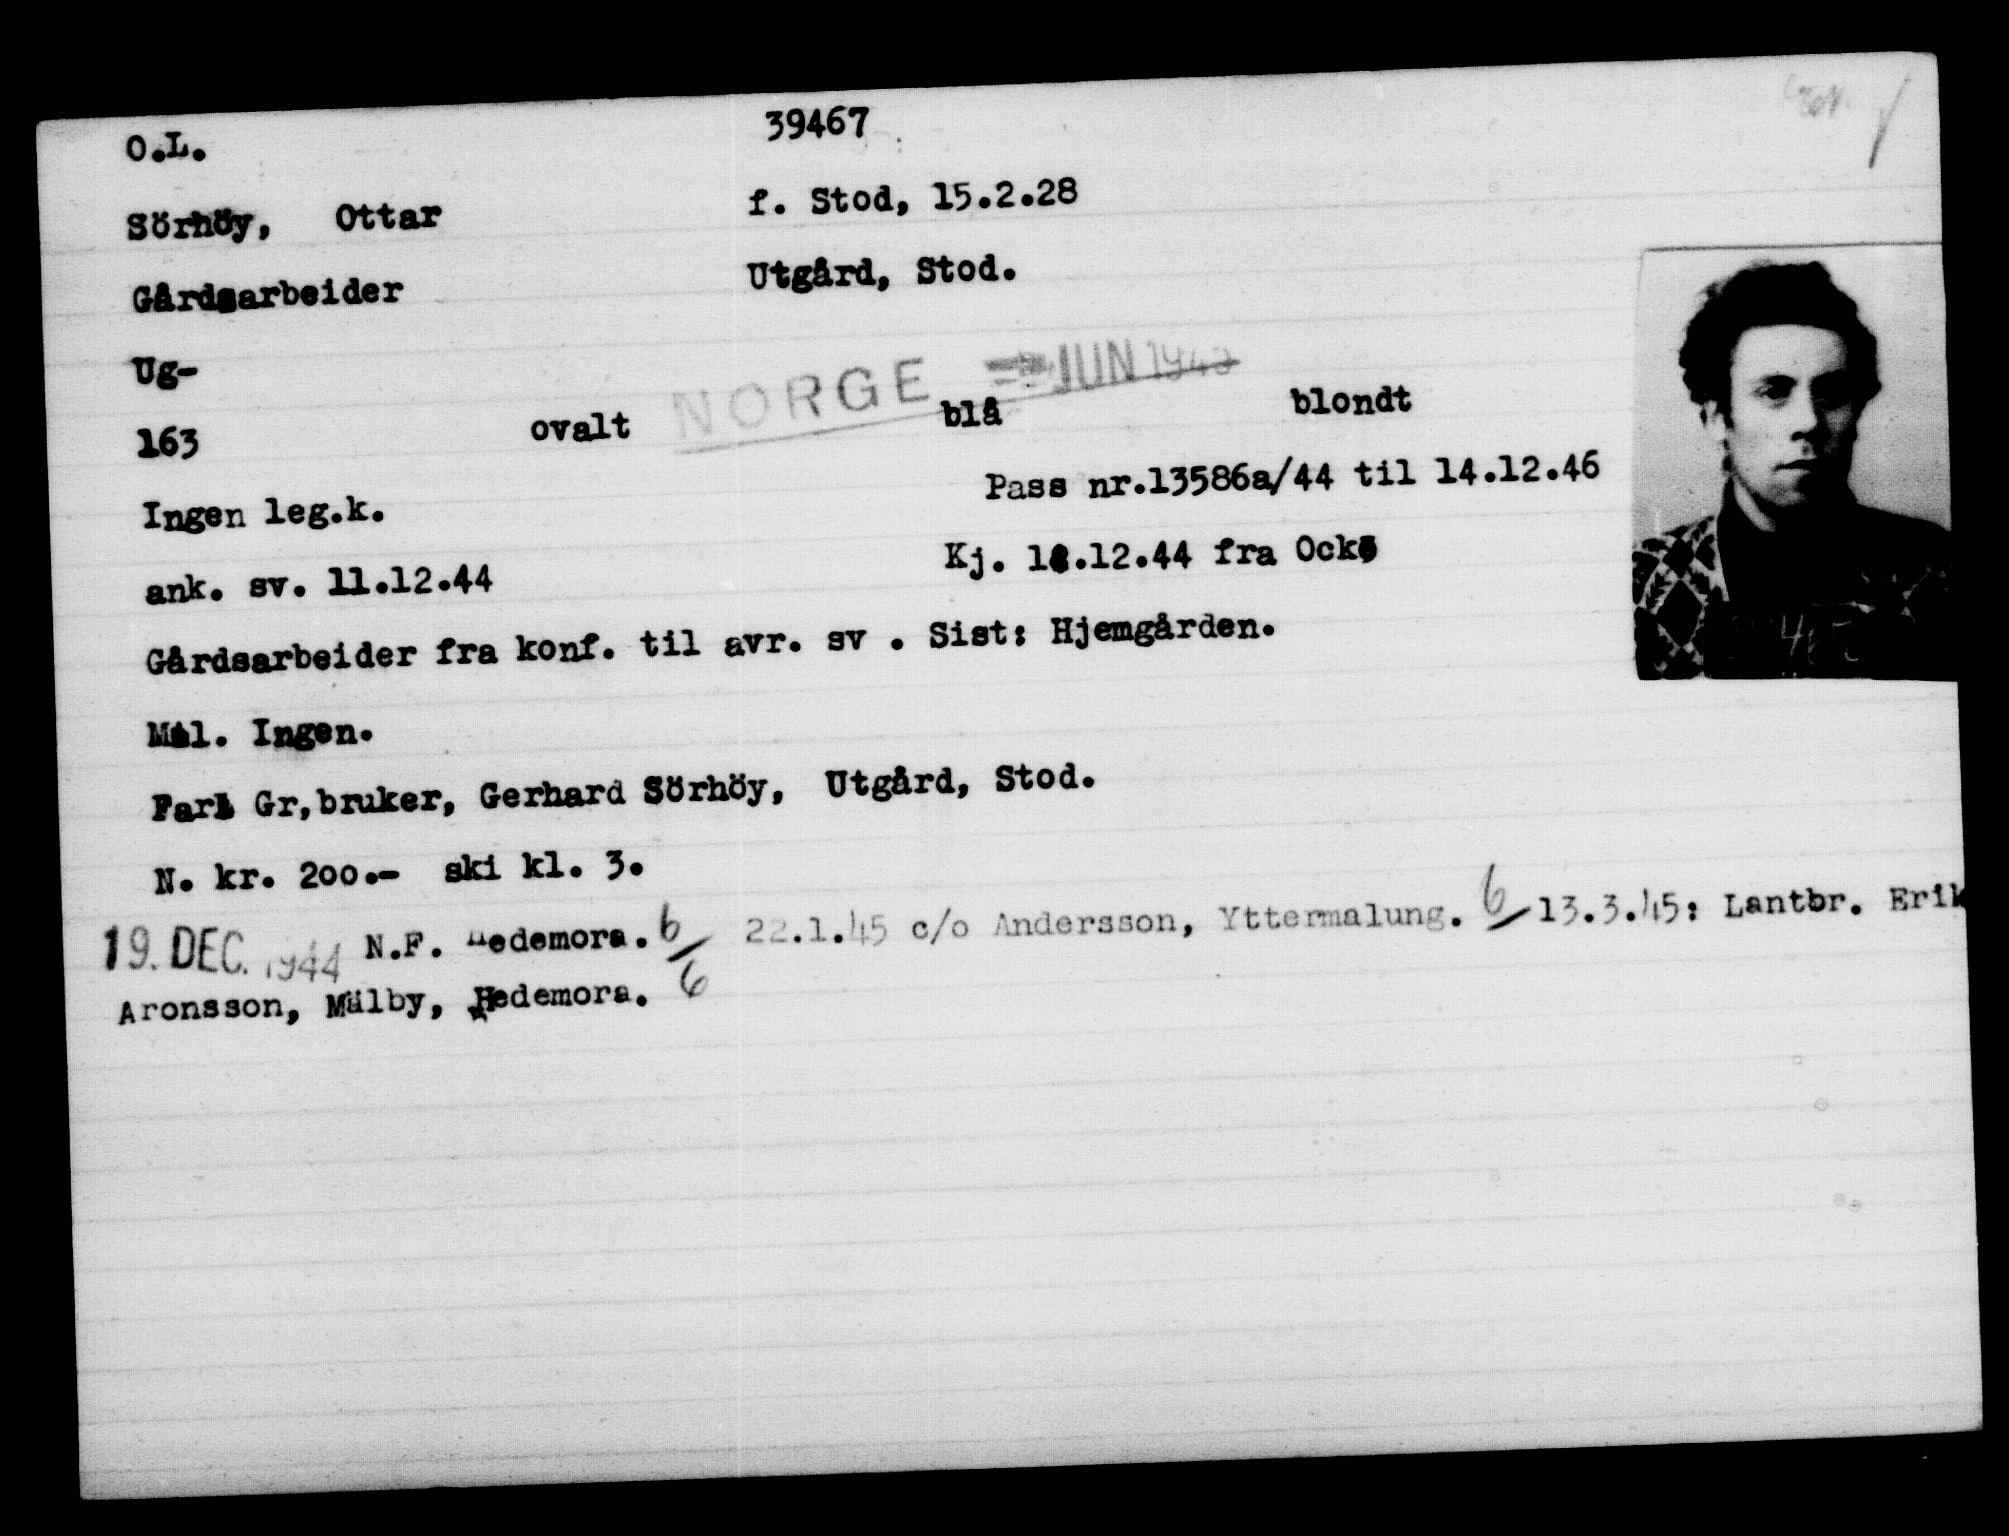 O.L. 39467
Sörhöy, Ottar f. Stod, 15.2.28
Gårdsarbeider Utgård, Stod.
Ug-
NORGE JUN 1945
163 ovalt blå blondt
Ingen leg.k. Pass nr.13586a/44 til 14.12.46
ank. sv. 11.12.44 Kj. .12.44 fra Ockö
Gårdsarbeider fra konf. til avr. sv . Sist: Hjemgården.
Mål. Ingen.
Far: Gr,bruker, Gerhard Sörhöy, Utgård, Stod.
N. kr. 200.- ski kl. 3.
19. DEC. 1944 N.F. Hedemora. 6/6 22.1.45 c/o Andersson, Yttermalung. 6/ 13.3.45: Lantbr. Erik
Aronsson, Mälby, Hedemora.